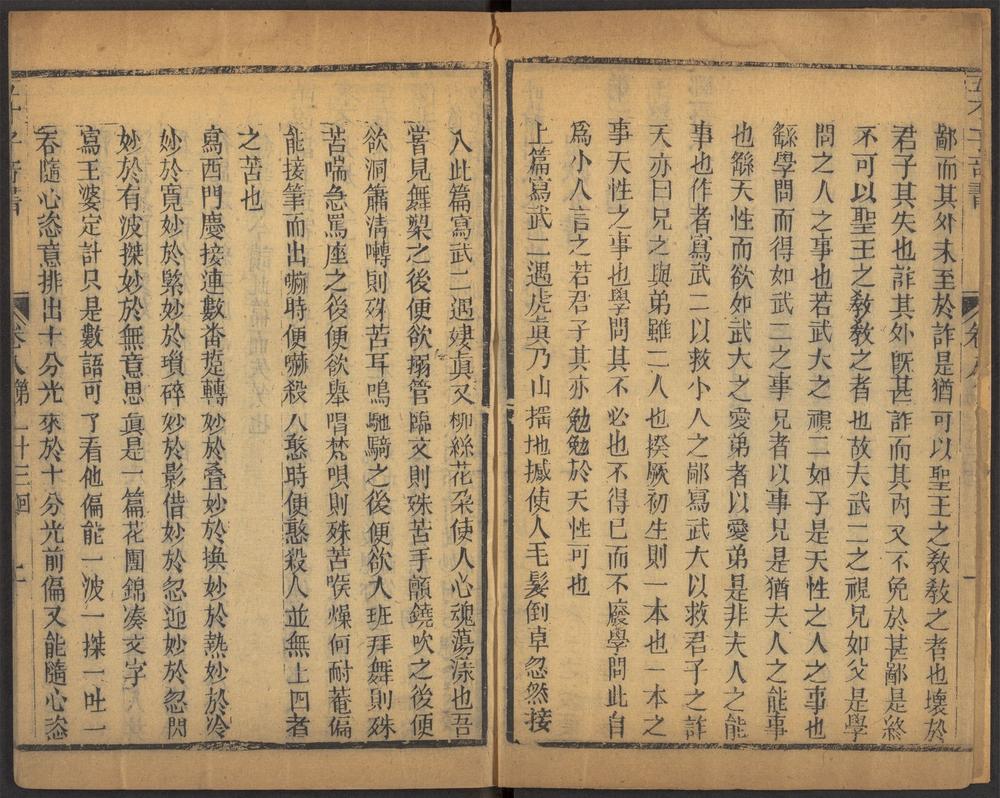 鄙而其外未至於詐是猶可以聖王之敎敎之者也壞於
君子其失也詐其外旣甚詐而其內又不免於甚鄙是終
不可以聖王之敎敎之者也故夫武二之視兄如父是學
問之人之事也若武大之視二如子是天性之人之事也
繇學問而得如武二之事兄者以事兄是猶夫人之能事
也繇天性而欲如武大之愛弟者以愛弟是非夫人之能
事也作者寫武二以救小人之鄙寫武大以救君子之詐
夫亦曰兄之與弟雖二人也揆厥初生則一本也一本之
事天性之事也學問其不必也不得已而不廢學問此自
爲小人言之若君子其亦勉勉於天性可也
上篇寫武二遇虎眞乃山搖地撼使人毛髮倒卓忽然接
入此篇寫武二遇嫂眞又柳絲花朶使人心魂蕩漾也吾
嘗見舞槊之後便欲搦管臨文則殊苦手顫鐃吹之後便
欲洞簫淸囀則殊苦耳鳴馳騎之後便欲入班拜舞則殊
苦喘急罵座之後便欲舉唱梵唄則殊苦喉燥何耐菴偏
能接筆而出嚇時便嚇殺人憨時便憨殺人並無上四者
之苦也
寫西門慶接連數番踅轉妙於叠妙於換妙於熱妙於冷
妙於寬妙於緊妙於瑣碎妙於影借妙於忽迎妙於忽閃
妙於有波搩妙於無意思眞是一篇花團錦湊文字
寫王婆定計只是數語可了看他偏能一波一搩一吐一
吞隨心恣意排出十分光來於十分光前偏又能隨心恣
卷八第二十三回